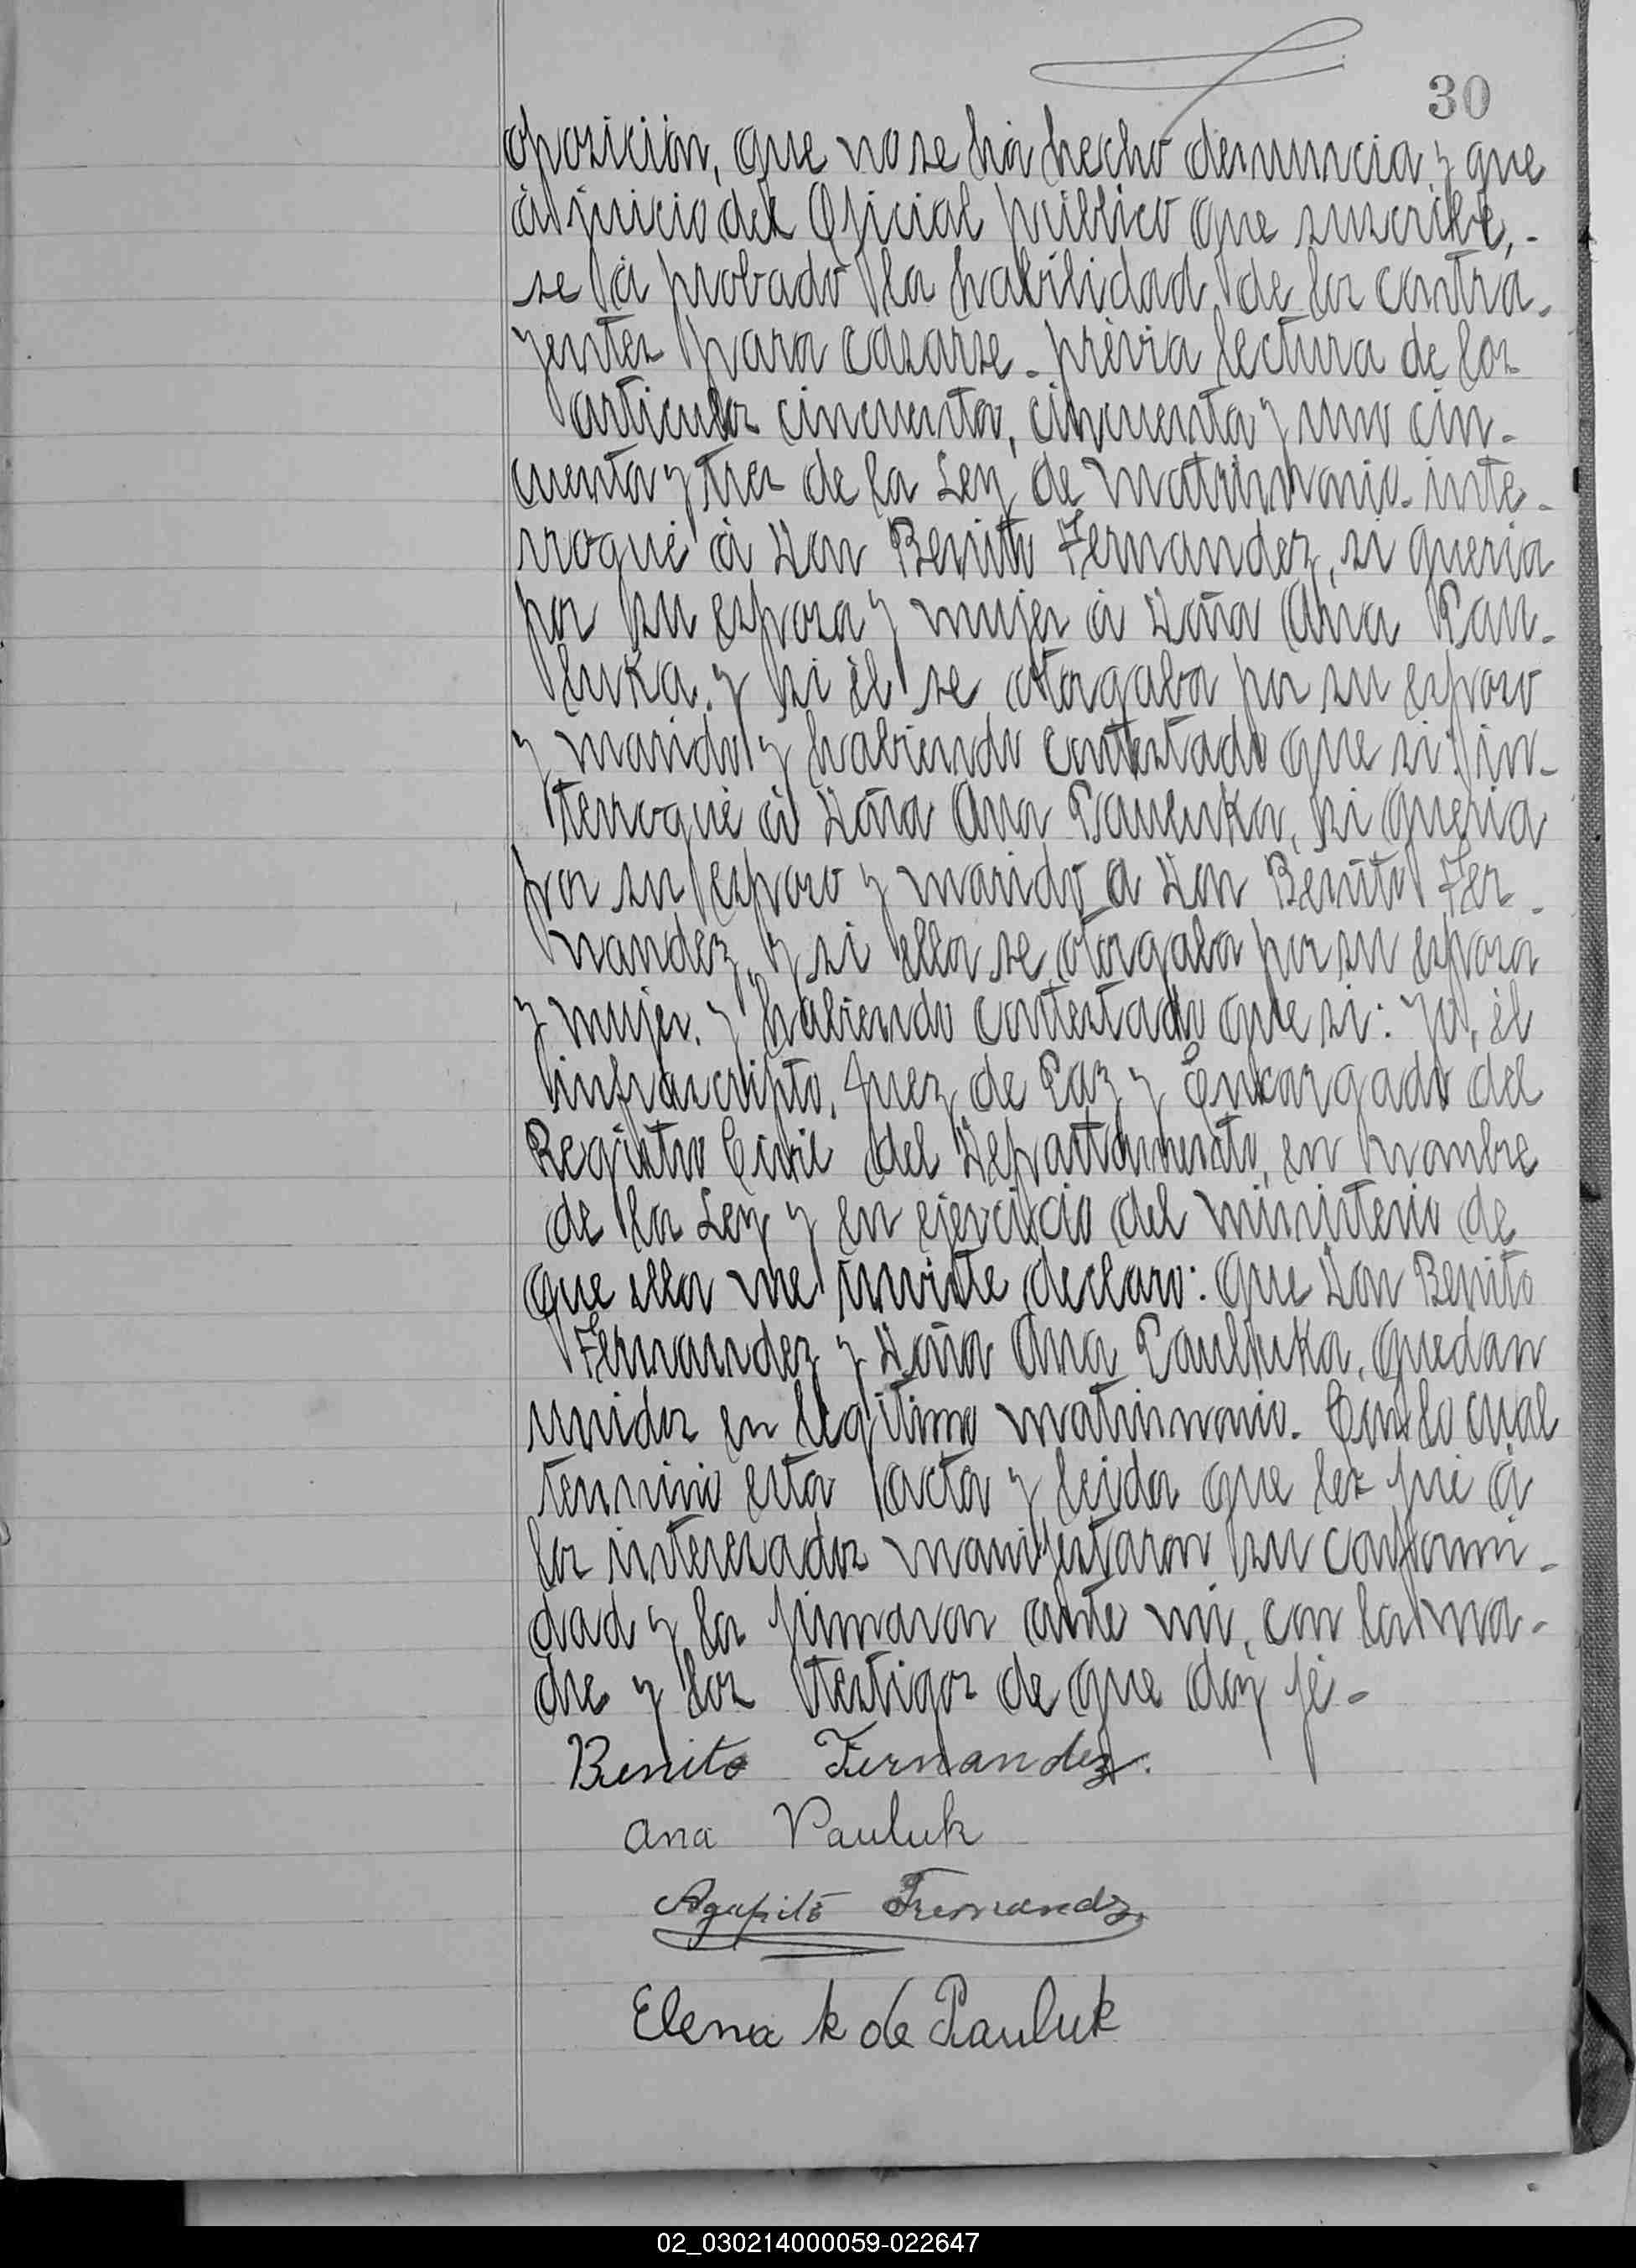 30
oposición, que no se há hecho denuncia y que
á juicio del Oficial público que suscribe, -
se á probado la habilidad de los contra-
yentes para casarse - prévia lectura de los
articulos cincuenta, cincuenta y uno cin-
cuenta y tres de la Ley de Matrimonio - inte-
rrogué á Don Benito Fernandez, si queria
por su esposa y mujer á Doña Ana Pau-
luka, y si él se otorgaba por su esposo
y marido y habiendo contestado que si: in-
terrogué á Doña Ana Pauluka, si queria
por su esposo y marido a Don Benito Fer-
nandez, y si ella se otorgaba por su esposa
y mujer, y habiendo contestado que si: Yo, él
infrascripto, Juez de Paz y Encargado del
Registro Civil del Departamento, en nombre
de la Ley y en ejercicio del ministerio de
que ella me inviste declaro: que Don Benito
Fernandez y Doña Ana Pauluka, quedan
unidos en legitimo matrimonio. Con lo cual
terminó esta acta y leida que les fué á
los interesados manifestaron su conformi-
dad y la firmaron ante mi, con la ma-
dre y los testigos de que doy fé -
Benito Fernandez.
Ana Pauluk
Agapito Fernandz
Elena K de Pauluk
02_030214000059-022647